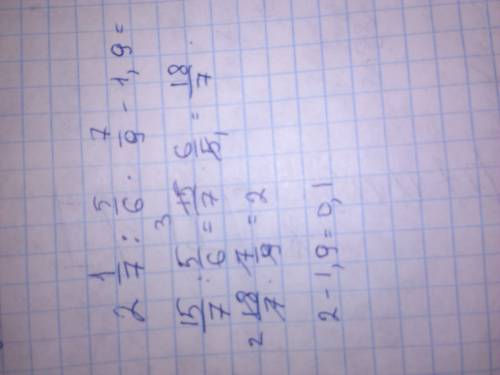 2 1/7 : 5/6 · 7/9 - 1,9 =
15/7 : 5/6 = 15/7 3 · 6/5 1 = 18/7
2 18/7 · 7/9 = 2
2 - 1,9 = 0,1